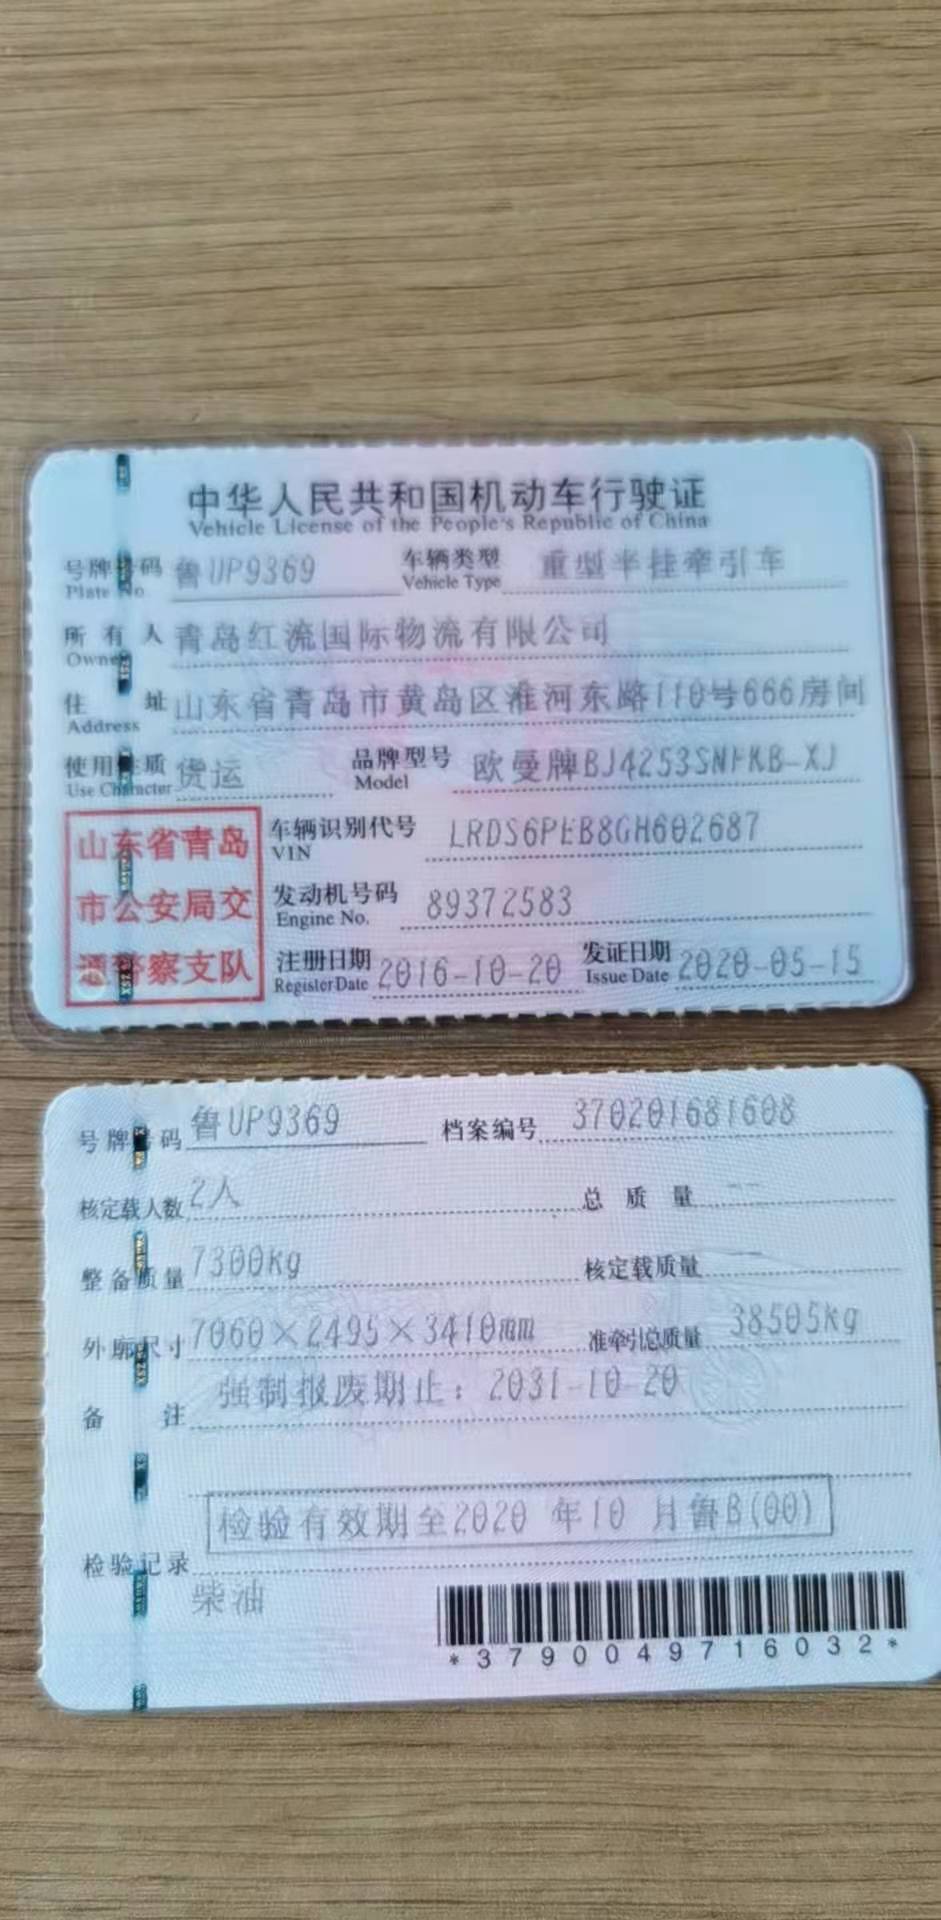 中华人民共和国机动车行驶证
Vehicle License of the People's Republic of China
号牌号码 鲁UP9369 车辆类型 重型半挂牵引车
Plate No. Vehicle Type
所有人 青岛红流国际物流有限公司
Owner
住址 山东省青岛市黄岛区淮河东路110号666房间
Address
使用性质 货运 品牌型号 欧曼牌BJ4253SNFKB-XJ
Use Character Model
山东省青岛
市公安局交
通警察支队
车辆识别代号 LRDS6PEB8GH602687
VIN
发动机号码 89372583
Engine No.
注册日期 2016-10-20 发证日期 2020-05-15
Register Date Issue Date
号牌号码 鲁UP9369 档案编号 370201681608
核定载人数 2人 总质量 --
整备质量 7300kg 核定载质量 --
外廓尺寸 7060×2495×3410mm 准牵引总质量 38505kg
备注 强制报废期止：2031-10-20
检验有效期至2020 年10 月鲁B(00)
检验记录
柴油
*3790049716032*